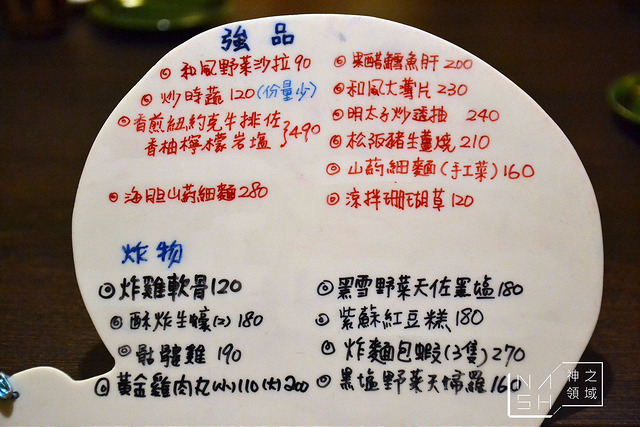 強品
◎ 和風野菜沙拉 90
◎ 炒時蔬 120(份量少)
◎ 香煎紐約克牛排佐
香柚檸檬岩塩 }490
◎ 海胆山葯細麵 280
◎ 果醋鱈魚肝 200
◎ 和風大薄片 230
◎ 明太子炒透抽 240
◎ 松阪豬生薑燒 210
◎ 山葯細麵(手工菜)160
◎ 涼拌珊瑚草 120
炸物
◎ 炸雞軟骨 120
◎ 酥炸生蠔(2) 180
◎ 骷髏雞 190
◎ 黃金雞肉丸(小)110 (大)200
◎ 黑雪野菜天佐墨塩 180
◎ 紫蘇紅豆糕 180
◎ 炸麵包蝦(3隻)270
◎ 黑塩野菜天婦羅 160
NASH 神之領域